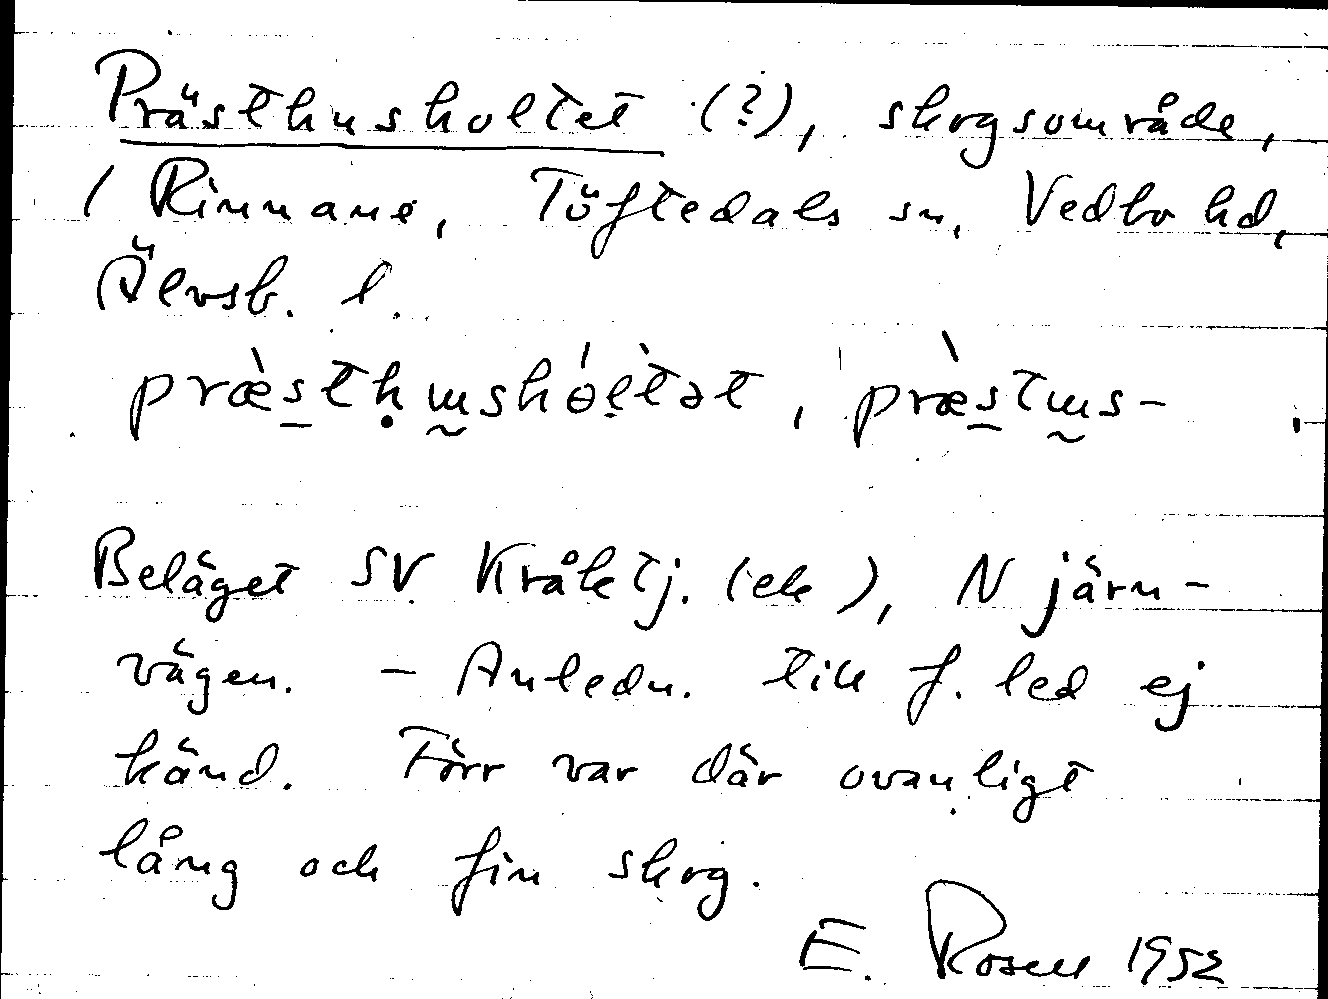 Prästhusholtet (?), skogsområde,
/ Rinnane, Töftedals sn, Vedbo hd,
Älvsb. l.
præ̀sthɯshól̀tət, præ̀stɯs-
Beläget SV Kråktj. (ek), N järn-
vägen. - Anledn. till f. led ej
känd. Förr var där ovanligt
lång och fin skog.
E. Rosell 1952